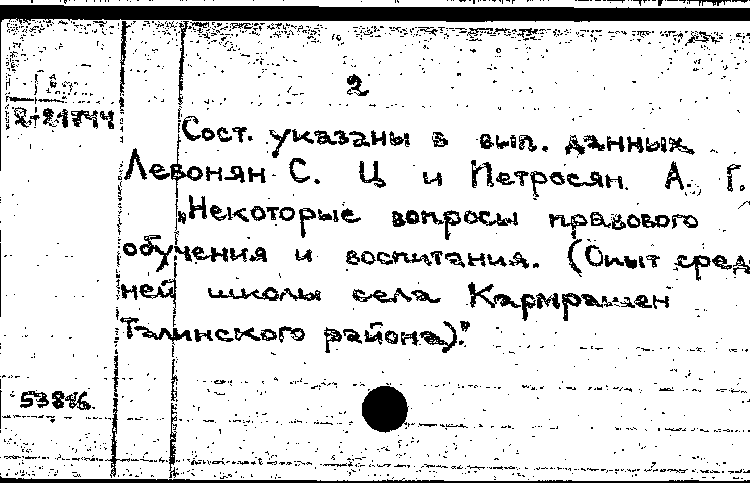 2
2-21744
Сост. указаны в вып. данных
Левонян С. Ц и Петросян А. Г.
„Некоторые вопросы правового
обучения и воспитания. (Опыт сред
ней школы села Кармрашен
Талинского района)."